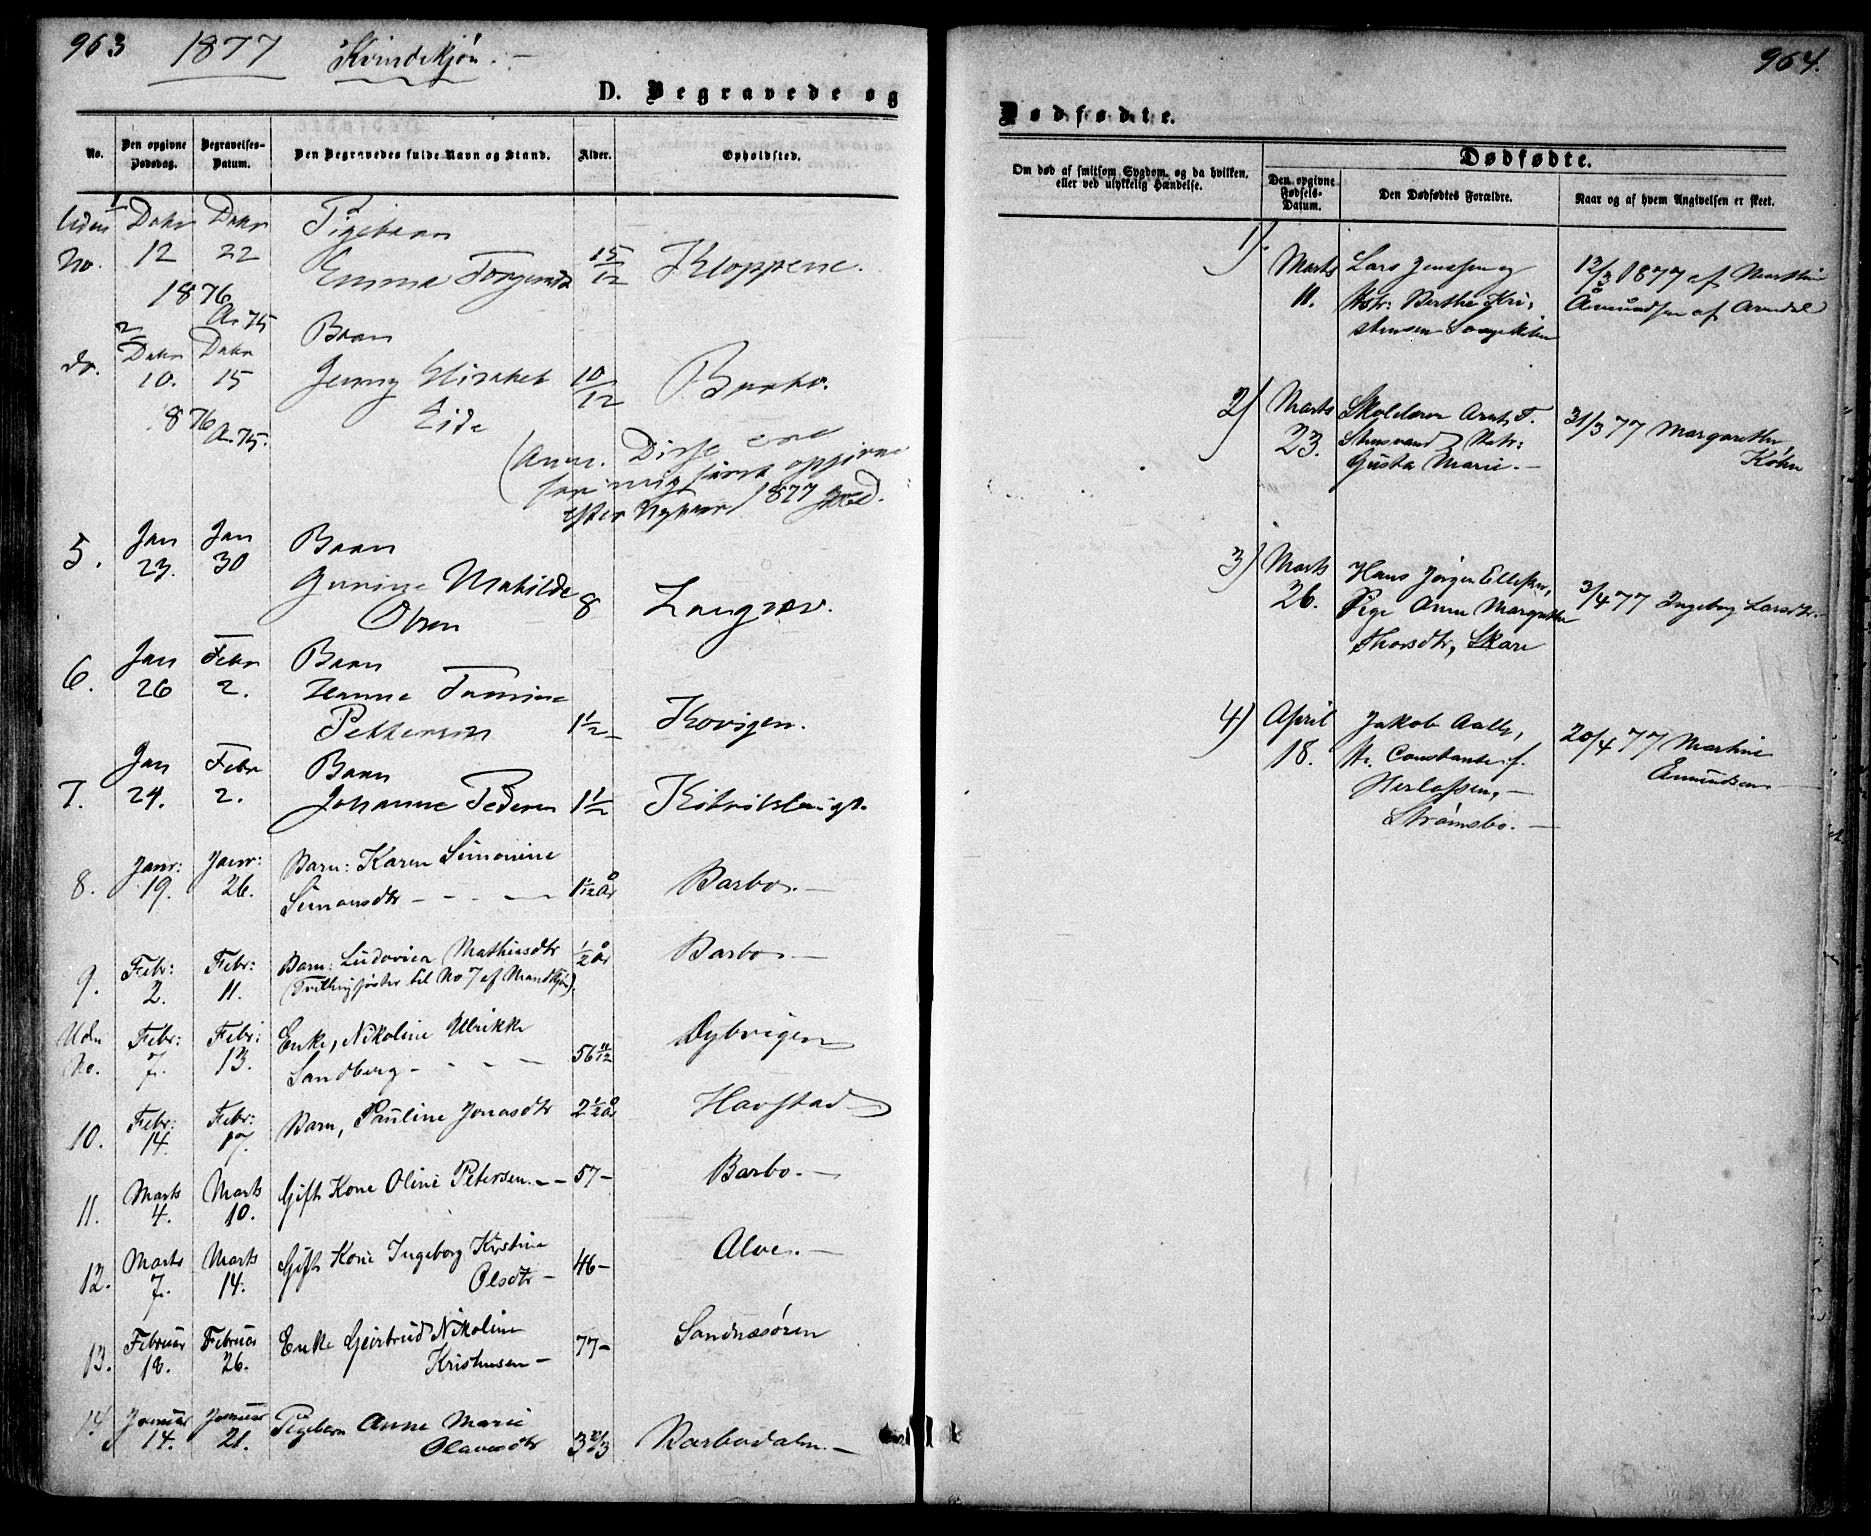 963 1877 Kvindekjøn. -
D. Begravede og
No. Den opgivne Dødsdag. Begravelses-Datum. Den Begravedes fulde Navn og Stand. Alder. Opholdsted.
1 Uden No. Debr 12 Debr 22 1876 Pigebarn
Emma 15/12 Kloppene.
A. 75
2 do. Debr 10. Debr 15 876 A. 75. Barn
Jenny Elisabet 10/12 Barbo.
Eide
(Anm. Disse ere
for mig først opgivne
efter Nytaar 1877
5. Jan 23. Jan 30 Barn
Gunine Mathilde 8 Langsæv.
Olsen
6. Jan 26 Febr 2. Barn
Hanne Tomine
Pettersen 1 1/2 Kovigen.
7. Jan 24. Febr 2. Barn
Johanne Pedersen 1 1/2
8. Janr: 19. Janr: 26. Barn: Karen Simonine
Simonsdtr - - - 1 11/12 År Barbo. -
9. Febr: 2. Febr: 11. Barn: Ludovica Mathiasdtr 1/2 År Barbo -
(Tvillingsøster til No 7 af Mandkjøn).
Uden No. Febr: 7. Febr: 13. Enke, Nikoline Ulrikke
Sandberg - - - - 56 11/12 Dybvigen
10. Febr: 14. Febr: 17. Barn, Pauline Jonasdtr 2 1/2 År Havstad
11. Marts 4. Marts 10. Gift Kone Oline Petersen. - - 57 - Barbo. -
12. Marts 7. Marts 14. Gift Kone Ingeborg Kristine
Olsdtr - 46 - Alve. -
13. Februar 18. Februar 26. Enke Gjertrud Nikoline
Kristensen - 77 - Sandnæsøren
14. Januar 14. Januar 21. Pigebarn Anne Marie
Olavesdtr Barbodalen. -
964.
Dødfødte.
Om død af smitsom Sygdom, og da hvilken, eller ved ulykkelig Hændelse.
Dødfødte.
Den opgivne Fødsels-Datum. Den Dødfødtes Forældre. Naar og af hvem Angivelsen er skeet.
1). Marts 11. Lars Jensen og
Hstr. Berthe Kri-
stensen
12/3 1877 af Marthine
Åmundsen af Arendal
2) Marts 23. Skolelærer Arnt T.
Stensvand, Hstr:
Gusta Marie. -
31/3 77 Margarethe
Köhn
3) Marts 26. Hans Jørgen Ellefsen,
Pige Anne Margrethe
Thorsdtr, Skare
3/4 77 Ingeborg Larsdtr.
4) April 18. Jakob Aalby,
H. Constance f.
Herlofsen, -
Strømsbo. -
20/4 77 Martine
Amundsen -